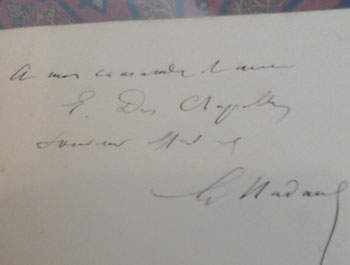 A mon camarade & ami
E. Des Chapelles
Souvenir
G Nadaud